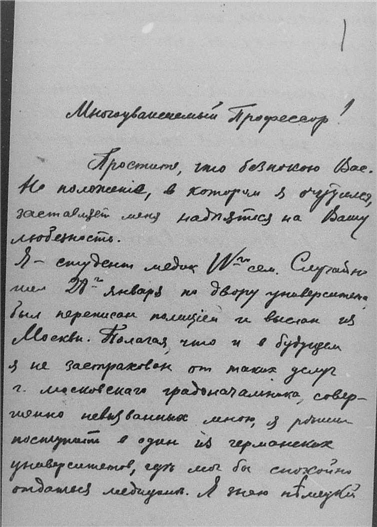 Многоуважаемый Профессор!
Простите, что безпокою Вас.
Но положение, в котором я очутился,
заставляет меня надѣятся на Вашу
любезность.
Я - студент медик IV го сем. Случайно
шел 28го января по двору университета
был переписан полицiей и выслан из
Москвы. Полагая, что и в будущем
я не застрахован от таких услуг
г. московскаго градоначальника, совер-
шенно невызванных мною, я рѣшил
поступить в один из германских
университетов, гдѣ мог бы спокойно
отдаться медицинѣ. Я знаю нѣмецкiй